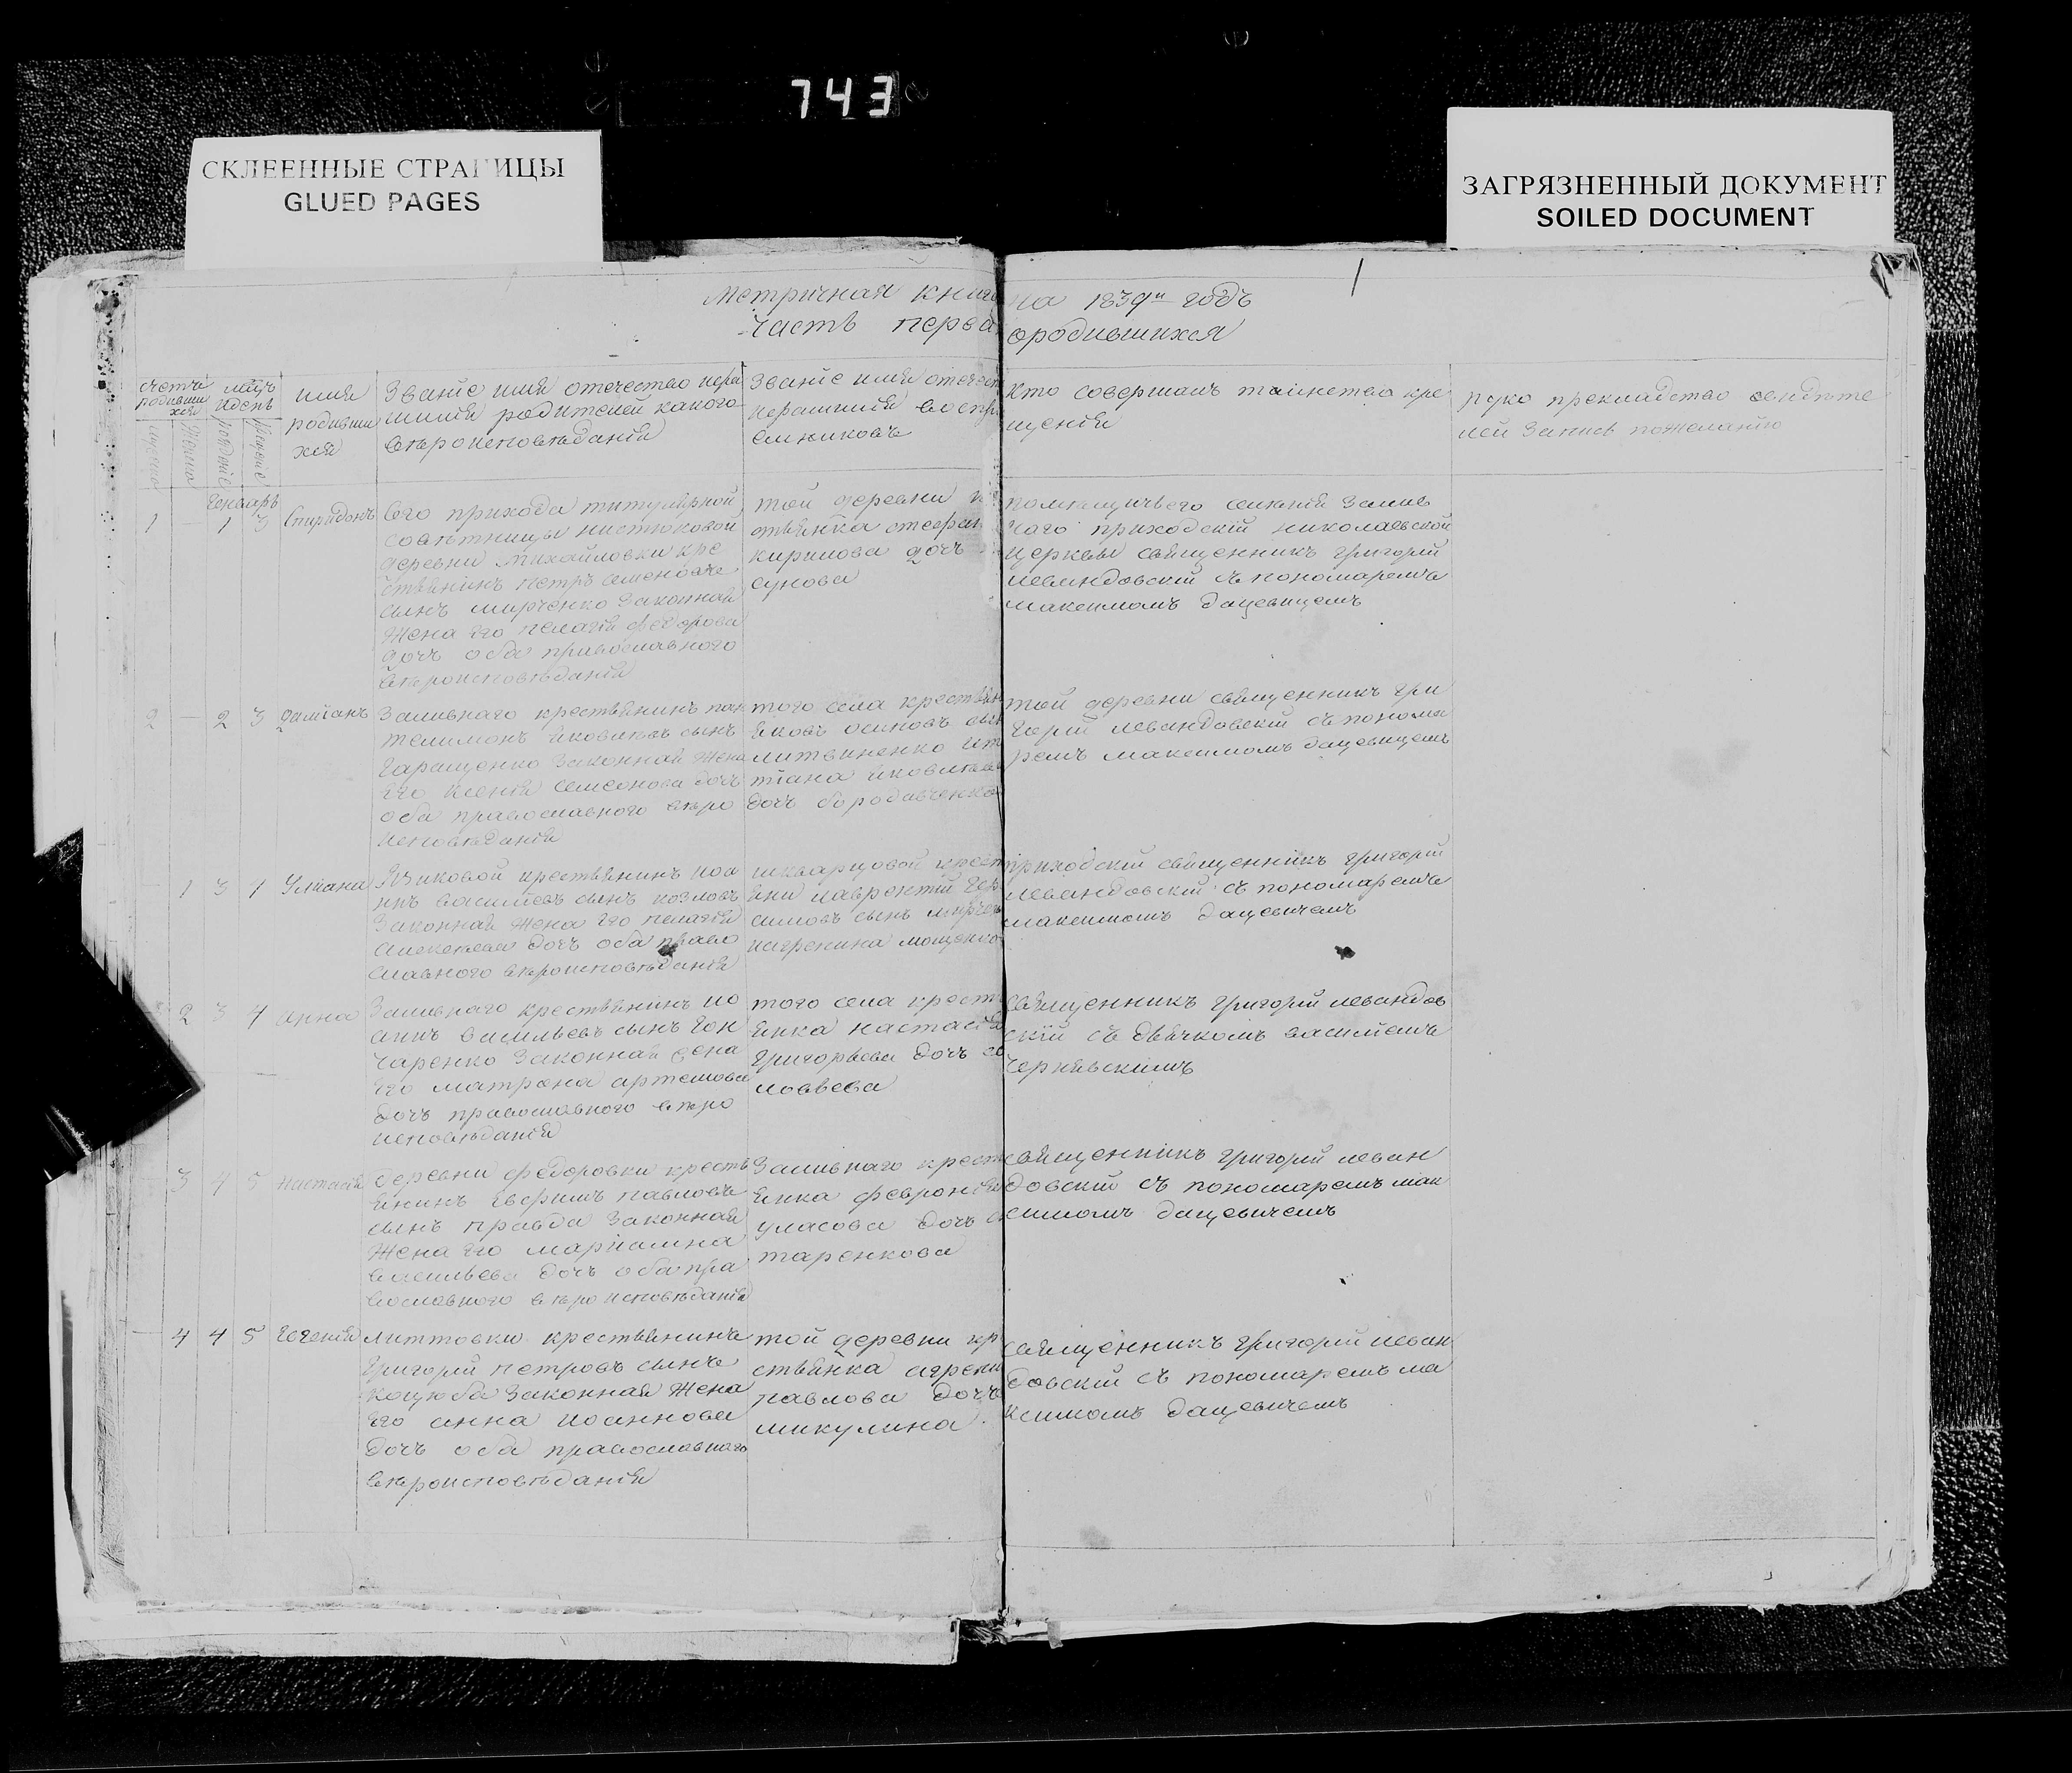 743
СКЛЕЕННЫЕ СТРАНИЦЫ
GLUED PAGES
ЗАГРЯЗНЕННЫЙ ДОКУМЕНТ
SOILED DOCUMENT
1
Метричная книга на 1839й годъ
Часть перва ородившихся
счетъ родивши хся
мцъ идень
имя родивши хся
Званіе имя отечество
родителей какого
вѣроисповѣданія
Званіе имя отечест
воспри
емниковъ
Кто совершалъ таинство кре
щенія
рукоприкладство свидѣте
лей запись пожеланію
Генварь
1 1 3 Спиридонъ
Его прихода титулярной
совѣтницы
деревни Михайловки кре
стьянинъ Петръ Семеновъ
сынъ Законная
Жена его Пелагія федорова
дочь оба православного
вѣроисповѣданія
той деревни
кирилова дочь
сукова
священникъ григорій
левандовскій съ пономаремъ
максимомъ дацевичемъ
2 2 3 даміанъ
Заливнаго крестьянинъ пан
телимонъ яковлевъ сынъ
Гаращенко Законная Жена
его Ксенія Семенова дочь
оба православного вѣро
исповѣданія
того села крестьян
яковъ осиповъ сын
литвиненко ит
тіана яковлева
дочь бородавченко
той деревни священникъ гри
горій левандовскій съ понома
ремъ максимомъ дацевичемъ
1 3 4 Уліана
крестьянинъ иоа
ннъ васильевъ сынъ козловъ
Законная Жена его пелагія
алексеева дочь оба право
славного вѣроисповѣданія
крест
яни лаврентій Гер
симовъ сынъ
приходскій священникъ григорій
левандовскій съ пономаремъ
максимомъ дацевичемъ
2 3 4 Анна
Заливнаго крестьянинъ ио
аннъ васильевъ сынъ Гон
чаренко Законная жена
его матрона артемова
дочь православного вѣро
исповѣданія
того села крест
янка настасія
Григорьева дочь со
ловьева
священникъ григорій левандов
скій съ дьячкомъ василіемъ
Чернявскимъ
3 4 5 Настасія
деревни федоровки кресть
янинъ Евфимъ павловъ
сынъ правда Законная
Жена его маріамна
васильева дочь оба пра
вославного вѣроисповѣданія
Заливнаго крест
янка февронія
уласова дочь с
таренкова
священникъ григорій леван
довскій съ пономаремъ мак
симомъ дацевичемъ
4 4 5 Евгенія
литтовки крестьянинъ
Григорій петровъ сынъ
коцюба Законная Жена
его анна иоаннова
дочь оба православнаго
вѣроисповѣданія
той деревни кр
стьянка агрени
павлова дочь
микулина
священникъ григорій леван
довскій съ пономаремъ ма
ксимомъ дацевичемъ